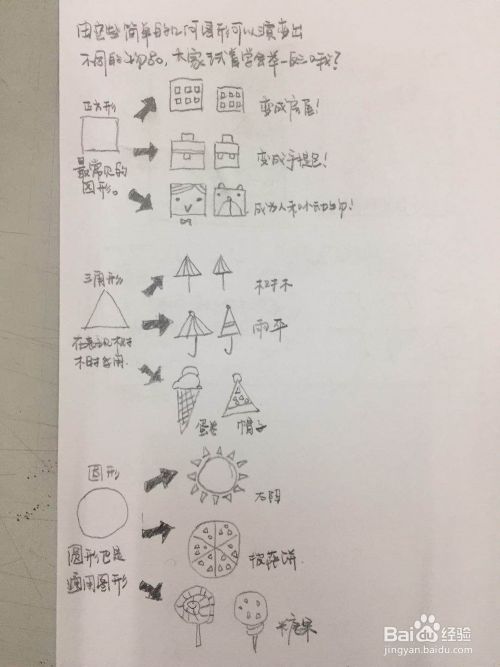 由这些简单的几何图形可以演变出
不同的物品，大家试着学会举一反三哦？
正方形
最常见的
图形。
变成房屋！
变成手提包！
成为人和小动物！
三角形
在表现树
木时常用.
树木
雨伞
蛋卷
帽子
圆形
圆形也是
通用图形
太阳
披萨饼.
糖果
Baidu经验
jingyan.baidu.com